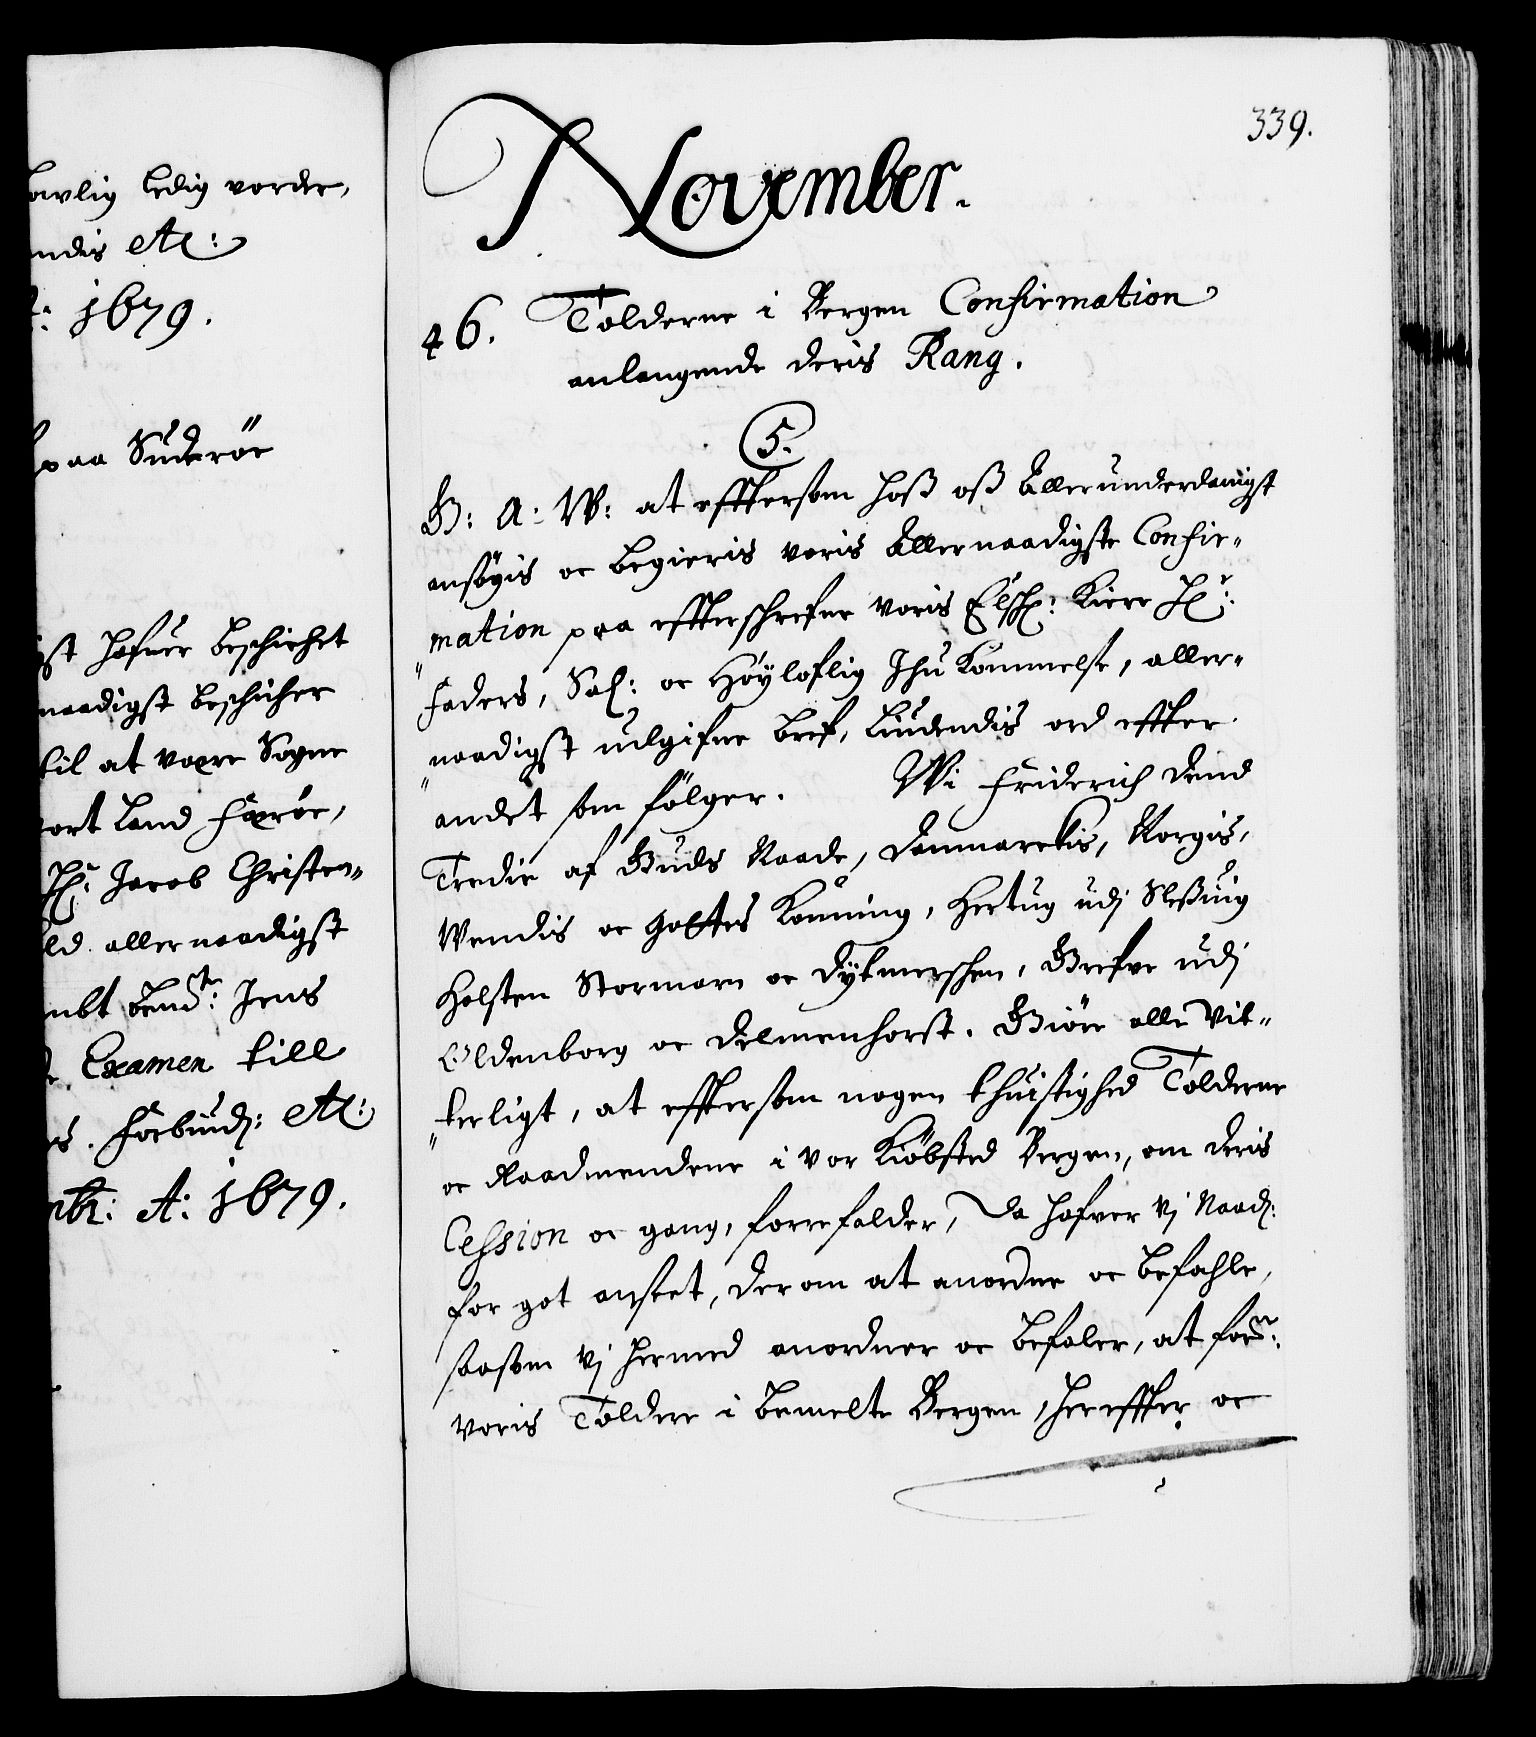 aulig ledig vorder,
ndis etc:
1679.
paa Suderöe
st hafuer beschicket
naadigst beschicker
til at være Sogne
vort Land Færöe,
Hr: Jacob Christen-
ld allernaadigst
mbt bemte: Jens
Examen till
s. Forbiud: etc:
mbr: A: 1679.
339.
November.
46. Tolderne i Bergen Confirmation
anlangende deris Rang.
5.
G: A: W: at effterson hoß oß allerunderdanigst
ansögis oc begieris voris allernaadigste Confir-
mation paa effterschrefne voris Elsch: Kiere Hr:
Faders, Sal: oc Höyloflig Ihukommelse, aller-
naadigst udgifne bref, liudendis ord effter
andet som fölger. Wi Friderich dend
Tredie af Guds Naade, Danmarckis, Norgis,
Wendis oc Gottes Konning, Hertug udj Sleßuig
Holsten Stormarn oc Dytmerschen, Grefve udj
Oldenborg oc Delmenhorst. Giöre alle vit-
terligt, at effterson nogen thuistighed Tolderne
oc Raadmendene i vor Kiöbsted Bergen, om deris
Cession oc gang, forrefalder, Da hafver Vj Naad:
for got anseet, derom at anordne oc befahle,
saasom Vj hermed anordner oc befaler, at forne:
voris Toldere i bemelte Bergen, hereffter oc